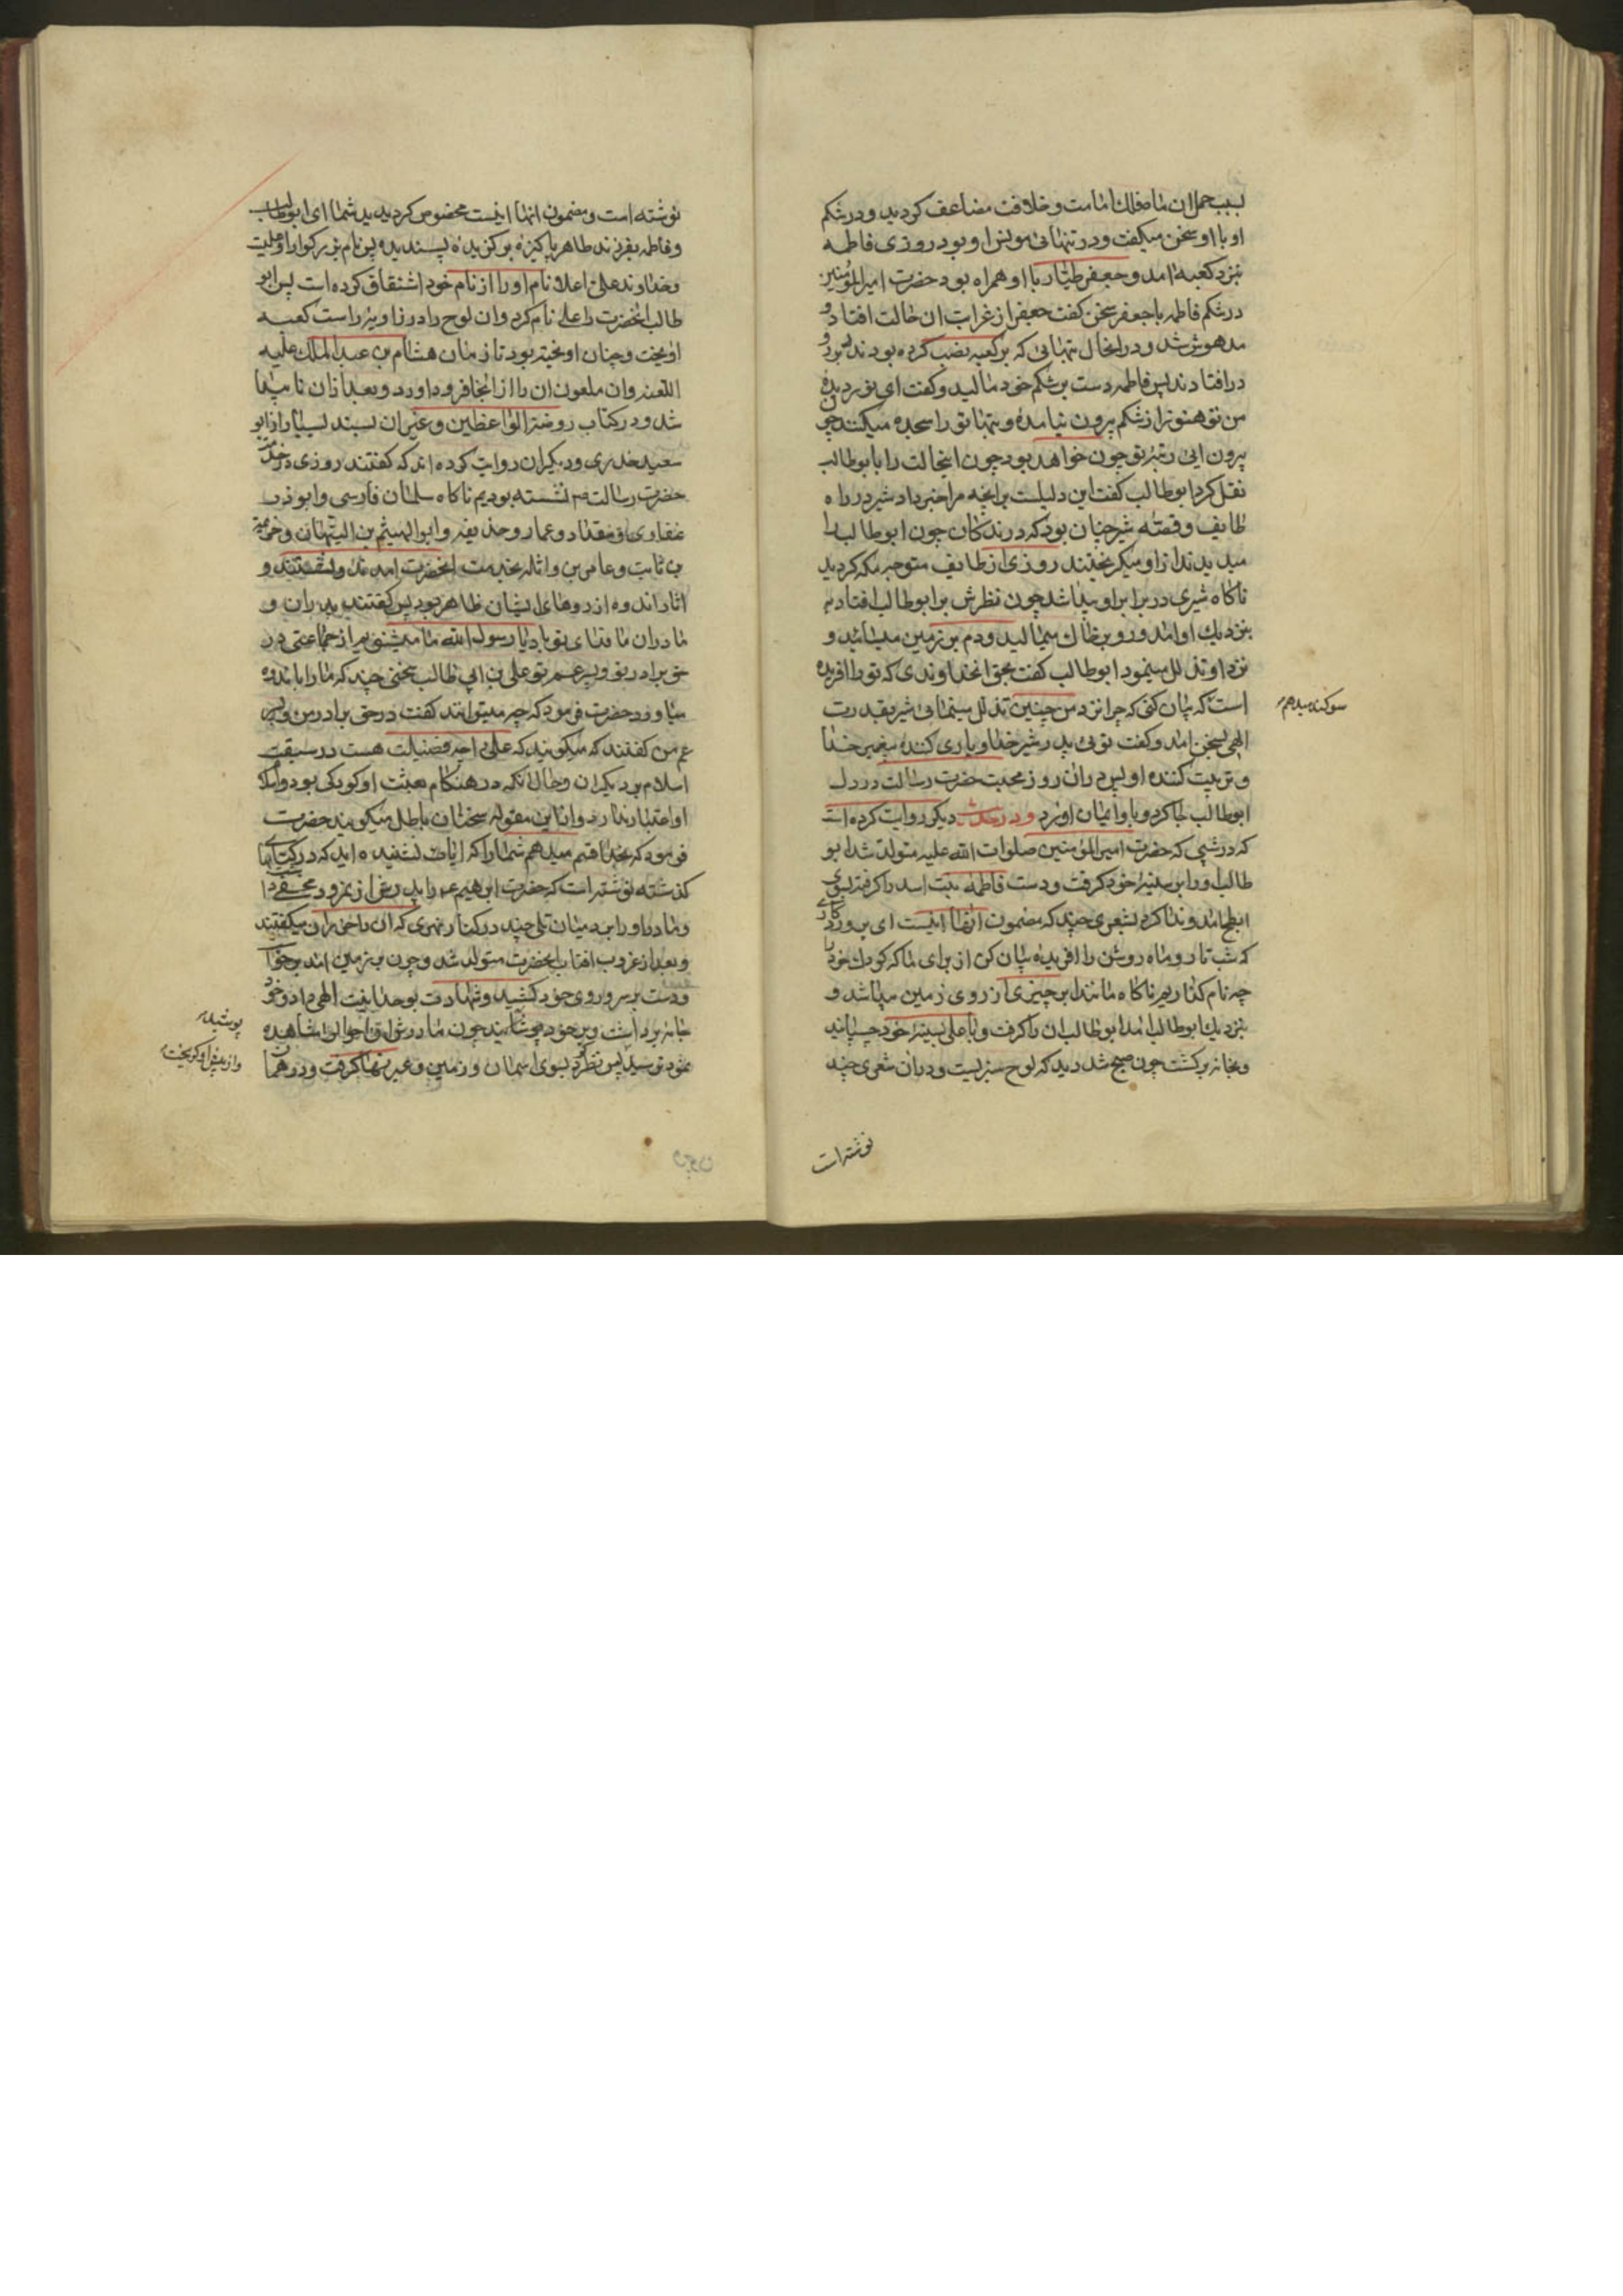 بسبب حمل ان ماه فلك امامت و خلافت مضاعف كرديد و در شكم
او با او سخن ميكفت و در تنهائى مونس او بود روزى فاطمه
بنزد كعبه امد و جعفر طيار با او همراه بود حضرت اميرالمؤمنين
در شكم فاطمه با جعفر سخن كفت جعفر از غرابت ان حالت افتاد و
مدهوش شد و در انحال بتهائى كه بر كعبه نصب كرده بودند برو
در افتادند پس فاطمه دست بر شكم خود ماليد و كفت اى نور ديدهٔ
من تو هنوز از شكم بيرون نيامدهٔ و بتها تو را سجده ميكنند چون
بيرون ايى رتبهٔ تو چون خواهد بود چون اينحالت را با بوطالب
نقل كرد ابوطالب كفت اين دليلست برانچه مرا خبر داد شير در راه
طايف و قصّهٔ شير چنان بود كه درندكان چون ابوطالب را
ميديدند از او ميكريختند روزى از طايف متوجه مكه كرديد
ناكاه شيرى در برابر او پيدا شد چون نظرش بر ابوطالب افتاد
بنزديك او امد و رو بر خاك ميماليد و دم بر زمين ميسائيد و
نزد او تذلل مينمود ابوطالب كفت بحق انخداوندى كه تو را افريده
است كه بيان كنى كه چرا نزد من چنين تذلل مينمائى شير بقدرت
سوكند ميدهم
الهى بسخن امد و كفت توئى پدر شير خدا و يارى كنندهٔ پيغمبر خدا
و تربيت كننده او پس دران روز محبت حضرت رسالت در دل
ابوطالب جا كرد و باو ايمان اورد و در حديث ديكر روايت كرده است
كه در شبى كه حضرت اميرالمؤمنين صلوات الله عليه متولد شد ابو
طالب او را بر سينهٔ خود كرفت و دست فاطمه بنت اسد را كرفته بسوى
ابطح امد و ندا كرد بشعرى چند كه مضمون انها اينست اى پروردكارى
كه شب تار و ماه روشن را افريدهٔ بيان كن از براى ما كه كودك خود را
چه نام كذاريم ناكاه مانند ابر چيزى از روى زمين پيدا شد و
بنزديك ابوطالب امد ابوطالب ان را كرفت و با على بسينهٔ خود چسپانيد
و بخانه بركشت چون صبح شد ديد كه لوح سبزيست و در ان شعرى چند
نوشته است
نوشته است و مضمون انها اينست مخصوص كرديديد شما اى ابوطالب
و فاطمه بفرزند طاهر پاكيزه بركزيدهٔ پسنديده پس نام بزركوار او عليست
و خداوند على اعلا نام او را از نام خود اشتقاق كرده است پس ابو
طالب انحضرت را على نام كرد و ان لوح را در زاويهٔ راست كعبه
اويخت و چنان اويخته بود تا زمان هشام بن عبدالملك عليه
اللعنه و ان ملعون ان را از انجا فرود اورد و بعد از ان نا پيدا
شد و در كتاب روضة الواعظين و غير ان بسند بسيار از ابو
سعيد خدرى و ديكران روايت كرده اند كه كفتند روزى در خدمت
حضرت رسالت نشسته بوديم ناكاه سلمان فارسى و ابوذر
غفارى و مقداد و عمار و حذيفه و ابوالهيثم بن التيهان و خزيمة
بن ثابت و عامر بن واثله بخدمت انحضرت امدند و نشستند و
اثار اندوه از روهاى ايشان ظاهر بود پس كفتند پدران و
مادران ما فداى تو باد يا رسول الله ما ميشنويم از جماعتى در
حق برادر تو و پسر عم تو على بن ابى طالب سخنى چند كه ما را باندوه
مياورد حضرت فرمود كه چه ميتوانند كفت در حق برادر من و پسر
عم من كفتند كه ميكويند كه على را چه فضيلت هست در سبقت
اسلام بر ديكران و حال انكه در هنكام بعثت او كودكى بود و اسلام
او اعتبار ندارد و از اين مقوله سخنان باطل ميكويند حضرت
فرمود كه بخدا قسم ميدهم شما را كه ايا نشنيده ايد كه در كتابهاى
كذشته نوشته است كه حضرت ابرهيم را پدرش از نمرود مخفى
و مادر او را در ميان تلى چند در كنار نهرى كه ان را خرزان ميكفتند
و بعد از غروب افتاب انحضرت متولد شد و چون بر زمين امد برخواست
و دست بر سر و روى خود كشيد و شهادت بوحدانيت الهى داد و خود
جامه برداشت و بر خود پوشانيد چون مادرش اين احوال را مشاهده
پوشيد
نمود ترسيد پس نظر كرد بسوى اسمان و زمين و عبرتها كرفت و در همان
و از پيش او كريخت